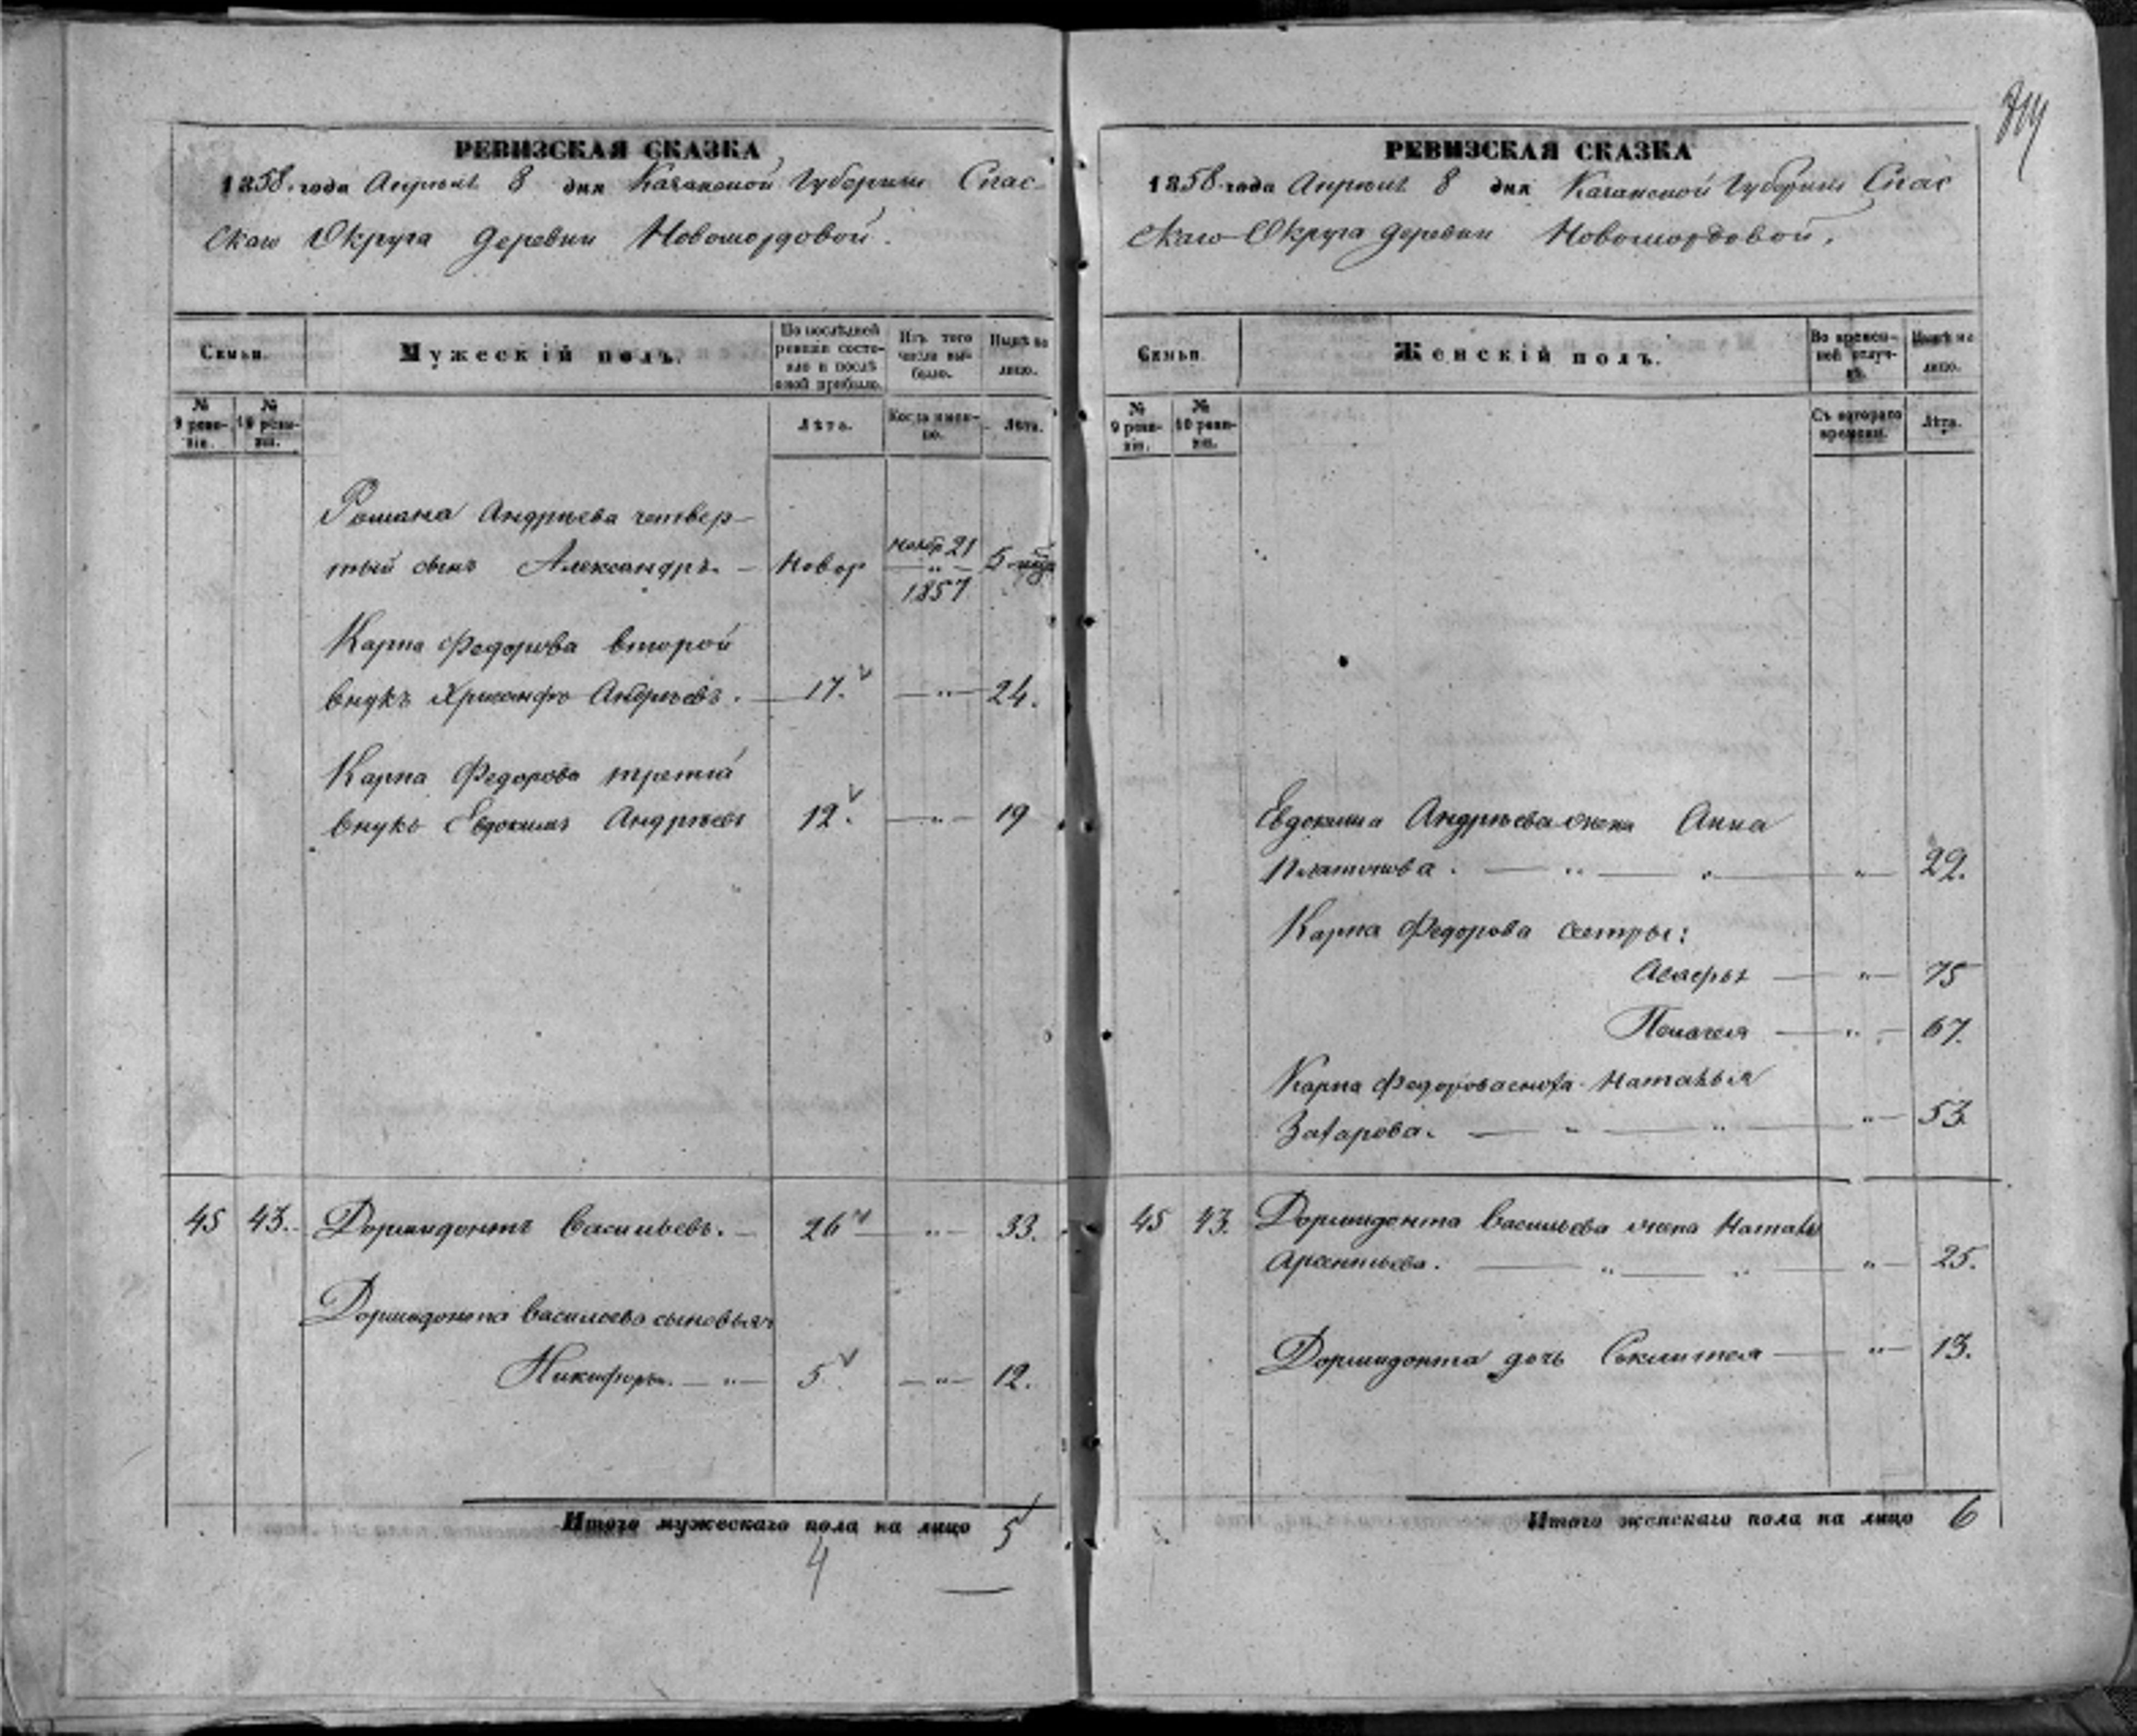 РЕВИЗСКАЯ СКАЗКА
1858 года Апрѣля 8 дня Казанской Губернии Спас
скаго Округа деревни Новомордовой.
Семьи.
Мужескій полъ.
По послѣдней ревизіи состояло и послѣ оной прибыло.
Изъ того числа выбыло.
Нынѣ на лицо.
№ 9 ревизіи.
№ 10 ревизіи.
Лѣта.
Когда именно.
Лѣта.
Романа Андрѣева четвер-
тый сынъ Александръ. — Новор 21 1857 5
Карпа Федорова второй
внукъ Хрисанфъ Андрѣевъ. — 17. — „ — 24.
Карпа Федорова третий
внукъ Евдокимъ Андрѣевъ 12. — „ — 19
45 43. Дормидонтъ Васильевъ. — 26 — „ — 33.
Дормидонта Васильева сыновья
Никифоръ. — „ — 5 — „ — 12.
Итого мужескаго пола на лицо 5
4
РЕВИЗСКАЯ СКАЗКА
1858 года Апрѣля 8 дня Казанской Губернии Спас
скаго Округа деревни Новомордовой.
Семьи.
Женскій полъ.
Во временной отлучкѣ.
Нынѣ на лицо.
№ 9 ревизіи.
№ 10 ревизіи.
Съ котораго времени.
Лѣта.
Евдокима Андрѣева жена Анна
Платонова. — „ — „ — 22.
Карпа Федорова сестры:
— „ — 75
— „ — 67.
Карпа Федорова сноха Наталья
Захарова. — „ — „ — „ — 53.
45 43. Дормидонта Васильева жена Наталья
Арсентьева. — „ — „ — „ — 25.
Дормидонта дочь — „ — 13.
Итого женскаго пола на лицо 6